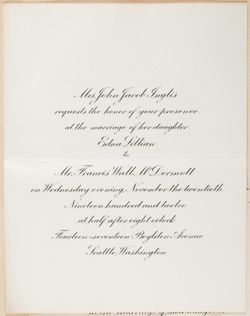 Mrs. John Jacob Inglis
requests the honor of your presence
at the marriage of her daughter
Edna Lillian
to
Mr. Francis Watt McDermott
on Wednesday evening, November the twentieth
Nineteen hundred and twelve
at half after eight o'clock
Fourteen-seventeen Boylston Avenue
Seattle, Washington